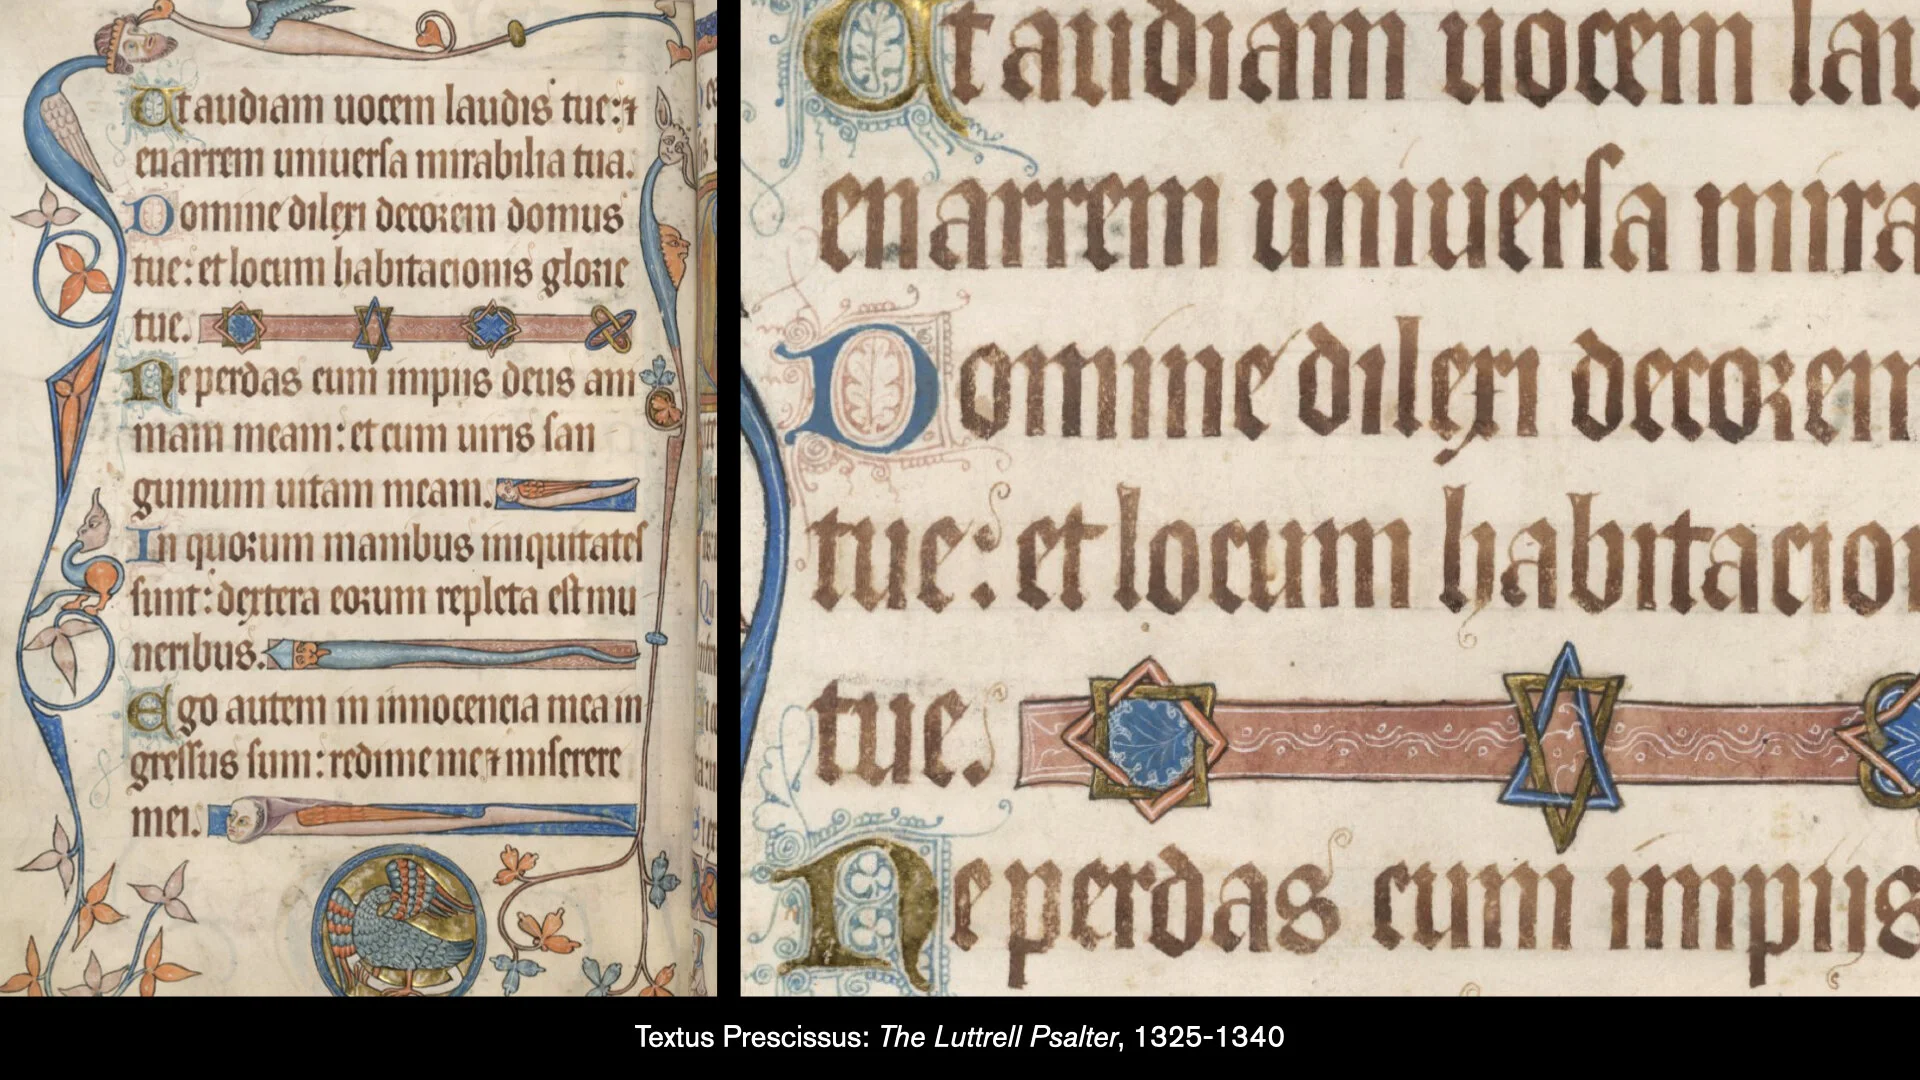 Ut audiam uocem laudis tue: ⁊
enarrem uniuersa mirabilia tua.
Domine dilexi decorem domus
tue: et locum habitacionis glorie
tue.
Ne perdas cum impiis deus ani
mam meam: et cum uiris san
guinum uitam meam.
In quorum manibus iniquitates
sunt: dextera eorum repleta est mu
neribus.
Ego autem in innocencia mea in
gressus sum: redime me ⁊ miserere
mei.
Ut audiam uocem lau
enarrem uniuersa mira
Domine dilexi decorem
tue: et locum habitacio
tue.
Ne perdas cum impiis
Textus Prescissus: The Luttrell Psalter, 1325-1340